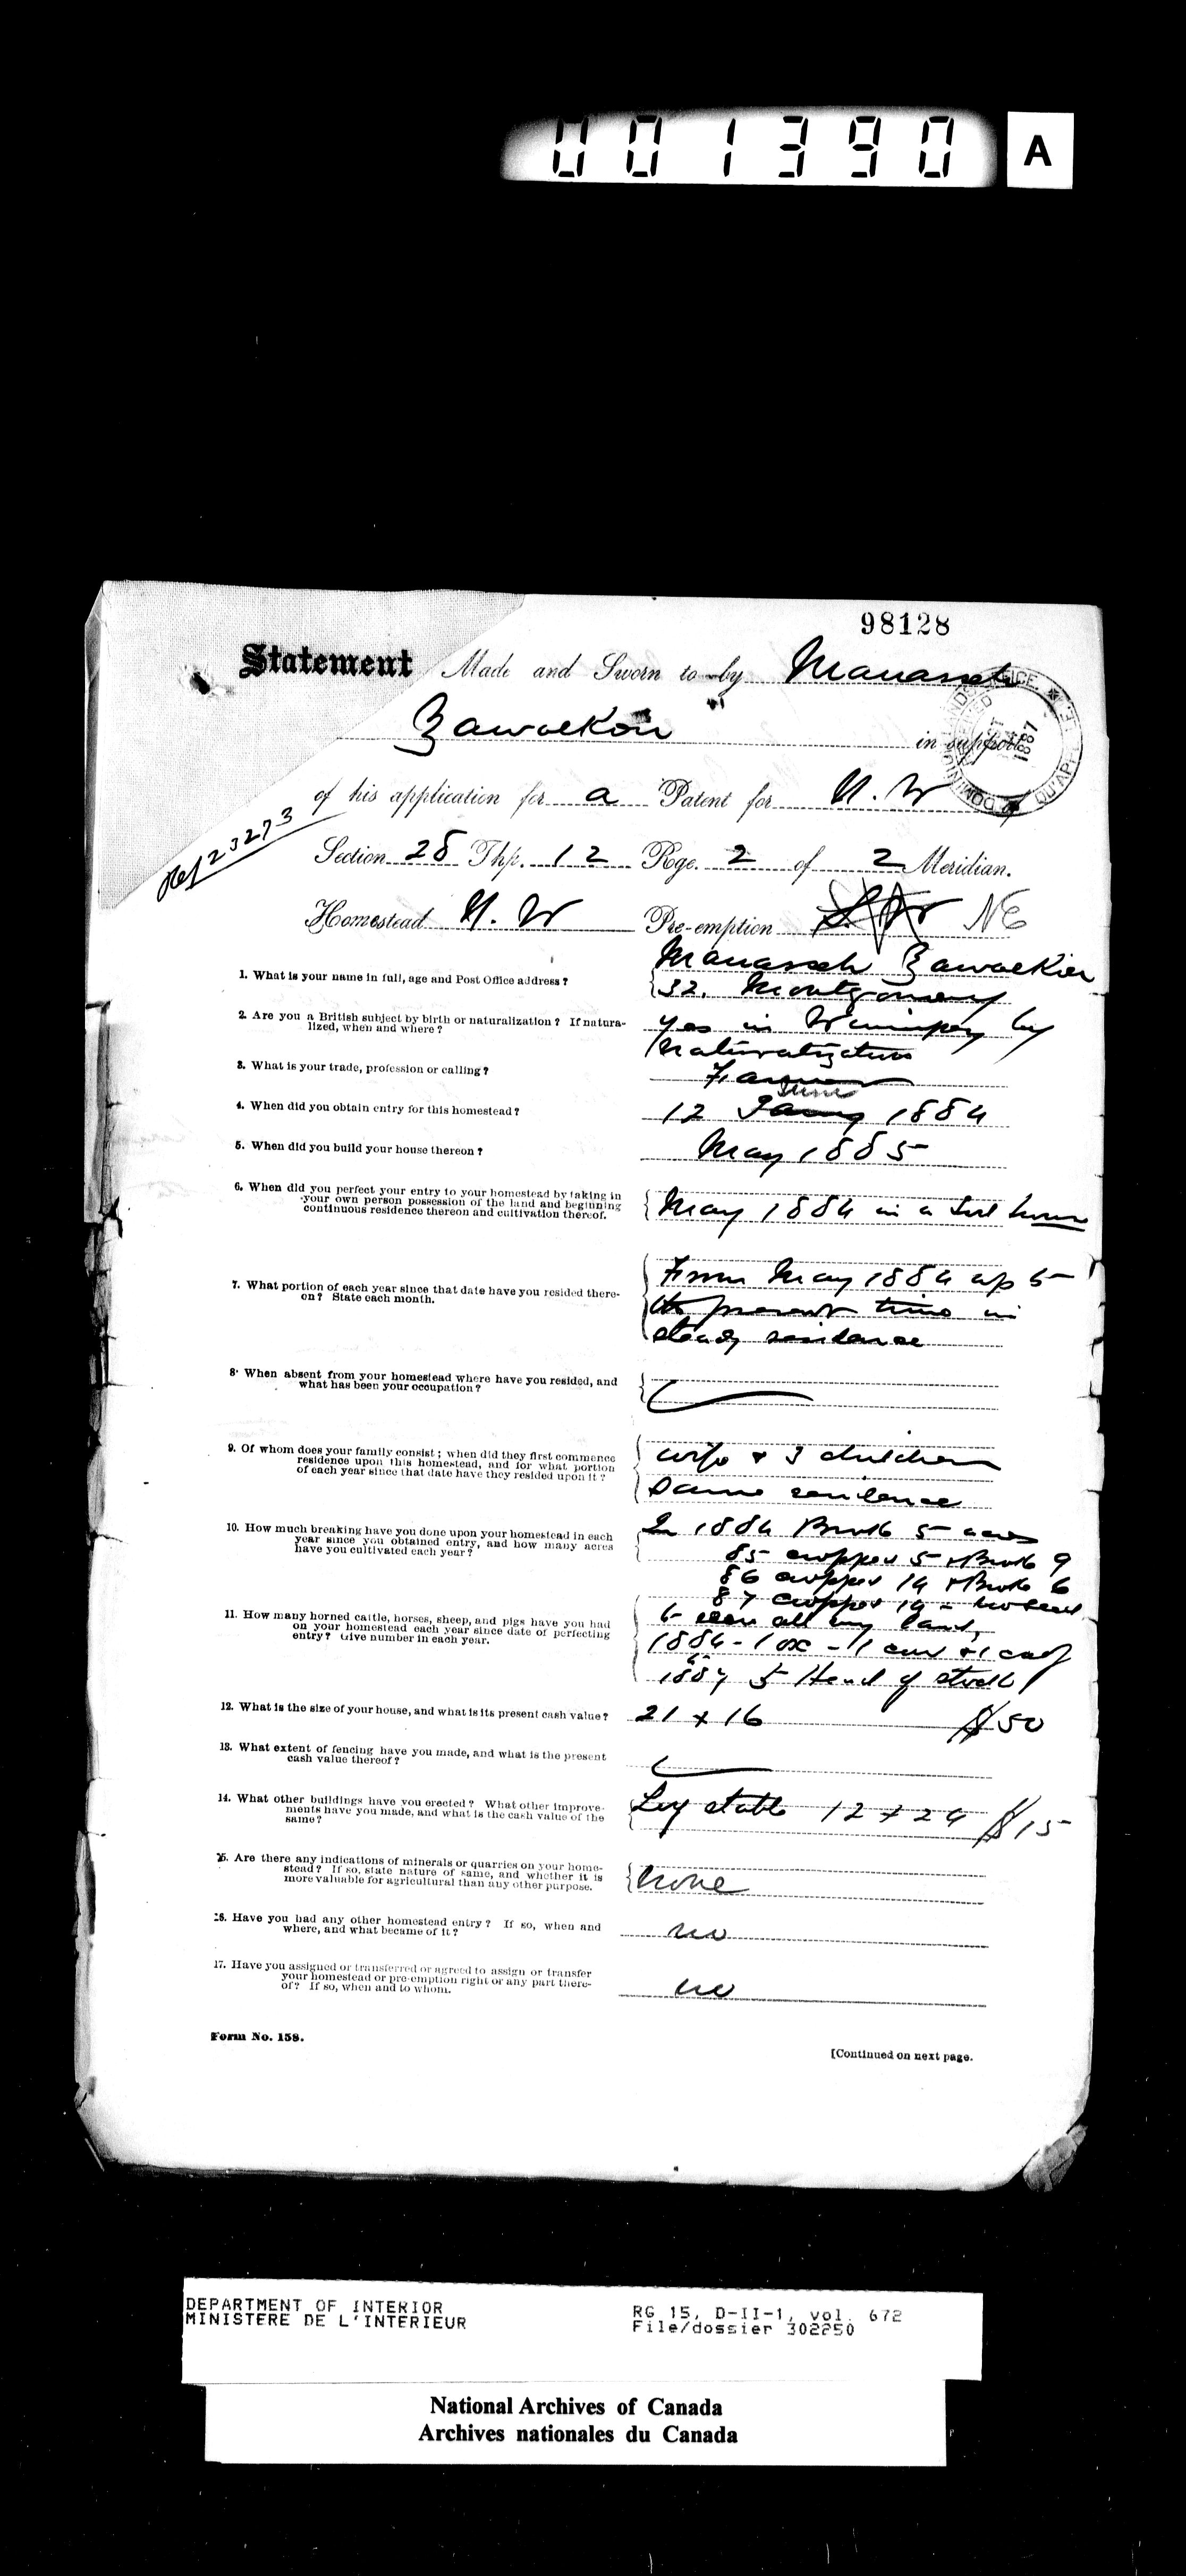 001390 A
98128
Statement Made and Sworn to by Manasseh
Zawoelkow
in support
of his application for a Patent for N. W
Ref 23273
Section 28 Thp. 12 Rge. 2 of 2 Meridian.
Homestead N. W Pre-emption NE
1. What is your name in full, age and Post Office address?
Manasseh Zawoelkien
32. Montgomery
2. Are you a British subject by birth or naturalization? If natura-
lized, when and where?
yes in Winnipeg by
Naturalization
3. What is your trade, profession or calling?
Farmer
4. When did you obtain entry for this homestead?
June
12 1884
5. When did you build your house thereon?
May 1885
6. When did you perfect your entry to your homestead by taking in
your own person possession of the land and beginning
continuous residence thereon and cultivation thereof.
May 1884 in a Sod house
7. What portion of each year since that date have you resided there-
on? State each month.
From May 1884 up to
the present time in
steady residence
8. When absent from your homestead where have you resided, and
what has been your occupation?
9. Of whom does your family consist; when did they first commence
residence upon this homestead, and for what portion
of each year since that date have they resided upon it?
wife & 3 children
Same residence
10. How much breaking have you done upon your homestead in each
year since you obtained entry, and how many acres
have you cultivated each year?
In 1884 Broke 5 acres
85 cropped 5 & Broke 9
86 cropped 14 & Broke 6
87 cropped 14 - no seed
to all my land,
11. How many horned cattle, horses, sheep, and pigs have you had
on your homestead each year since date of perfecting
entry? Give number in each year.
1884 - 1 ox - 1 cow & 1 calf
1887 5 Head of stock
12. What is the size of your house, and what is its present cash value?
21 x 16 $50
13. What extent of fencing have you made, and what is the present
cash value thereof?
14. What other buildings have you erected? What other improve-
ments have you made, and what is the cash value of the
same?
Log stable 12 x 24 $15
15. Are there any indications of minerals or quarries on your home-
stead? If so, state nature of same, and whether it is
more valuable for agricultural than any other purpose.
None
16. Have you had any other homestead entry? If so, when and
where, and what became of it?
no
17. Have you assigned or transferred or agreed to assign or transfer
your homestead or pre-emption right or any part there-
of? If so, when and to whom.
no
Form No. 158.
[Continued on next page.
DEPARTMENT OF INTERIOR
MINISTERE DE L'INTERIEUR
RG 15, D-II-1, vol. 672
File/dossier 302250
National Archives of Canada
Archives nationales du Canada